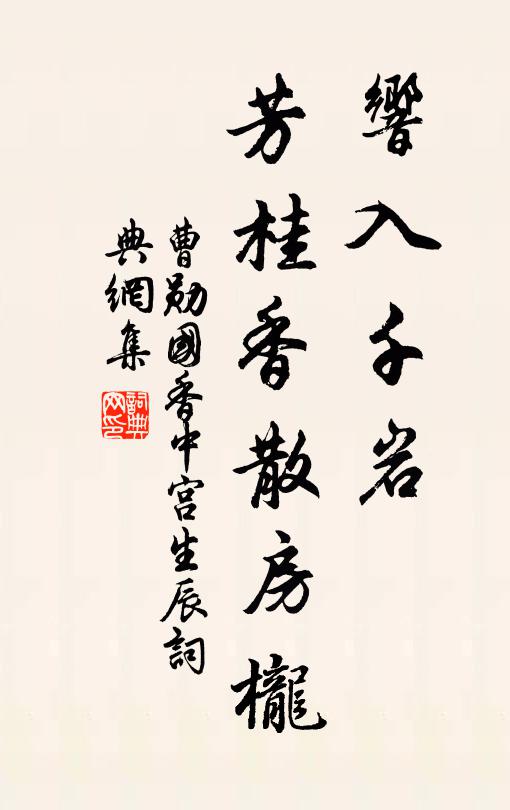 響入千岩
芳桂香散房櫳
曹勛國香中宫生辰詞
典網集
詞典
网印